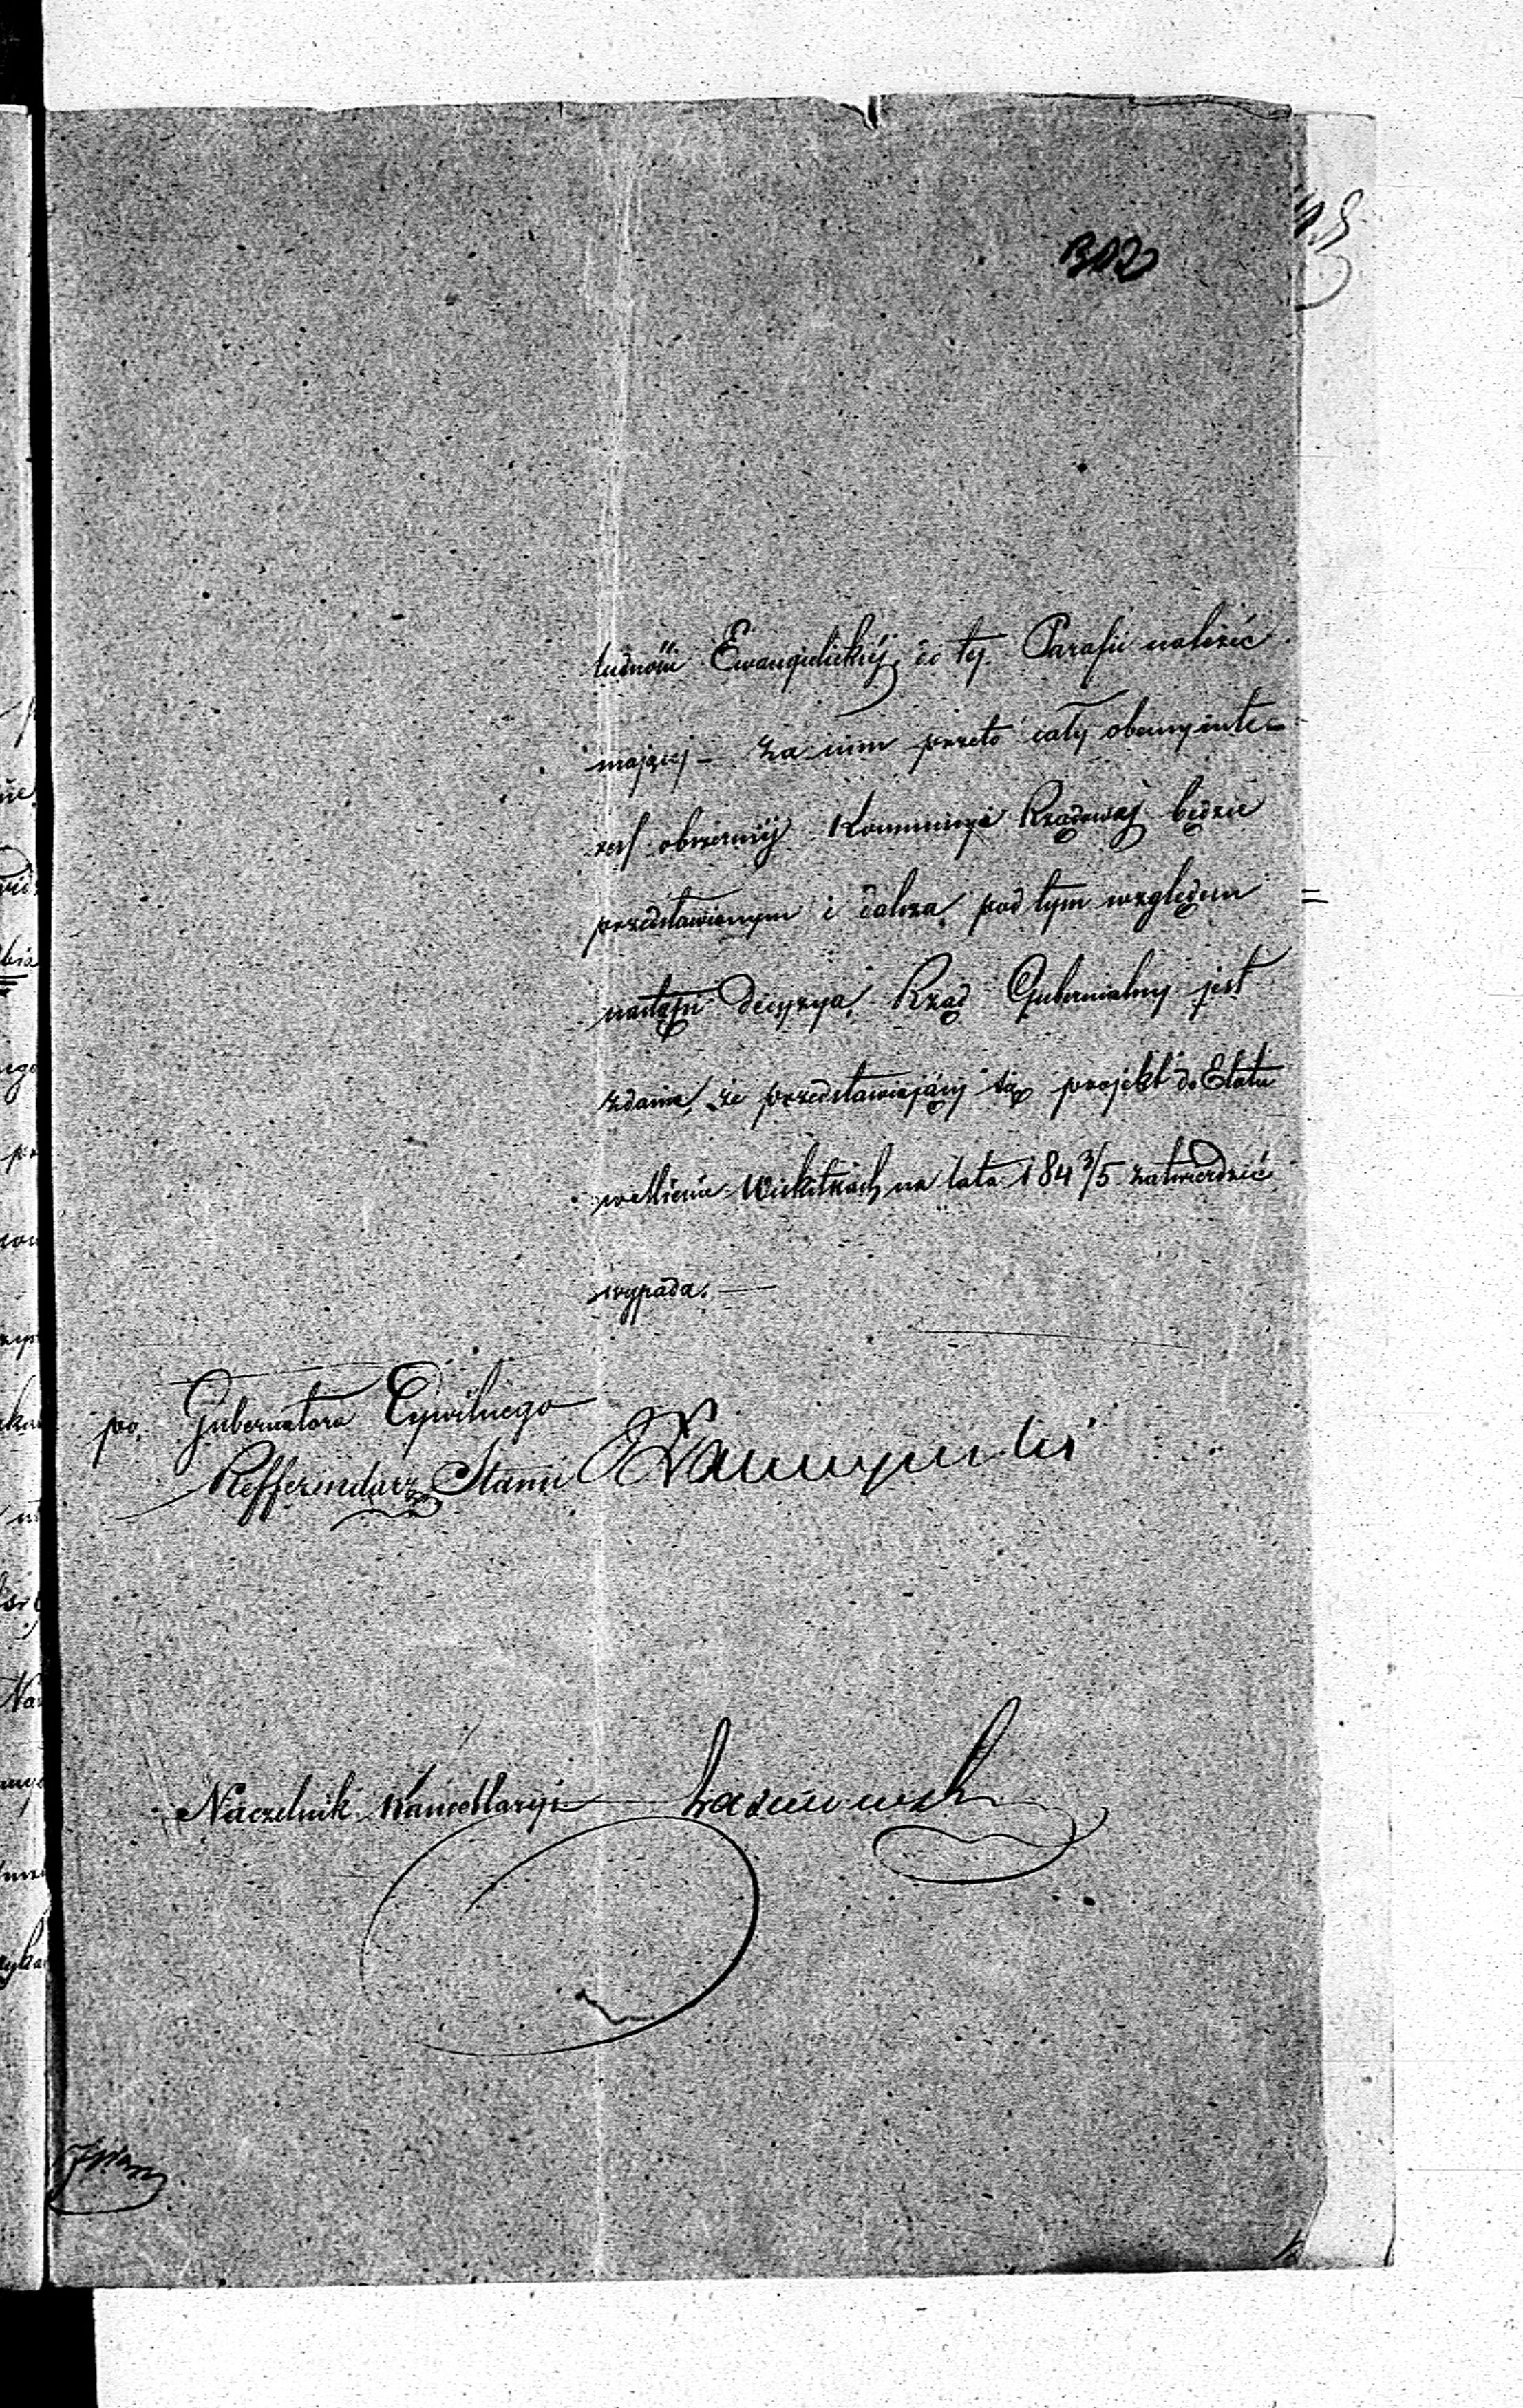 302
ludności Ewangielickiej do tej Parafii należeć
mającej – Za nim przeto cały obecny inte-
ress obszerniéj Kommissyi Rządowej będzie
przedstawionym i dalsza pod tym względem
nastąpi decyzya, Rząd Gubernialny jest
zdania, że przedstawiający się projekt do Etatu
w Wiskitkach na lata 184 3/5 zatwierdzić
wypada. —
po. Gubernatora Cywilnego
Refferendarz Stanu
Naczelnik Kancellaryi